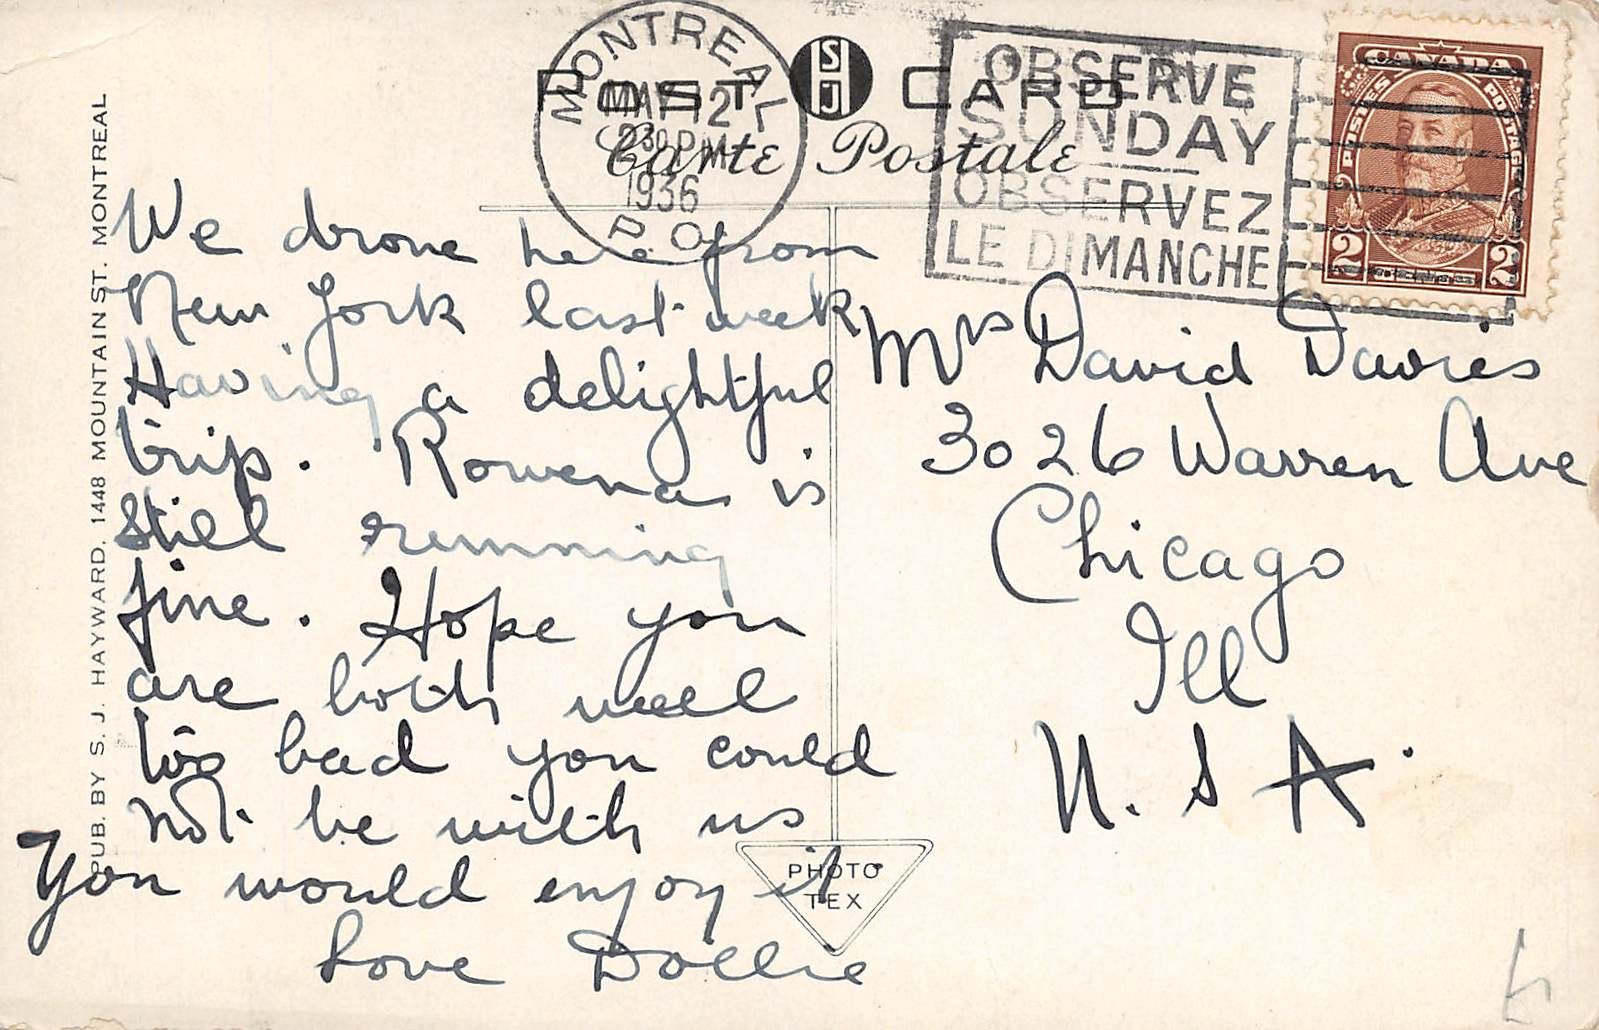 MONTREAL
MAY 12
230 PM
1936
P.O.
POST CARD
SJ
Carte Postale
OBSERVE
SUNDAY
OBSERVEZ
LE DIMANCHE
CANADA
POSTES POSTAGE
2 CENTS 2
PUB. BY S. J. HAYWARD, 1448 MOUNTAIN ST. MONTREAL
We drove here from
New York last week
Having a delightful
trip. Rowena is
still running
fine. Hope you
are both well
too bad you could
not be with us
You would enjoy it
Love Dollie
Mrs David Davies
3026 Warren Ave
Chicago
Ill
U. S A.
PHOTO
TEX